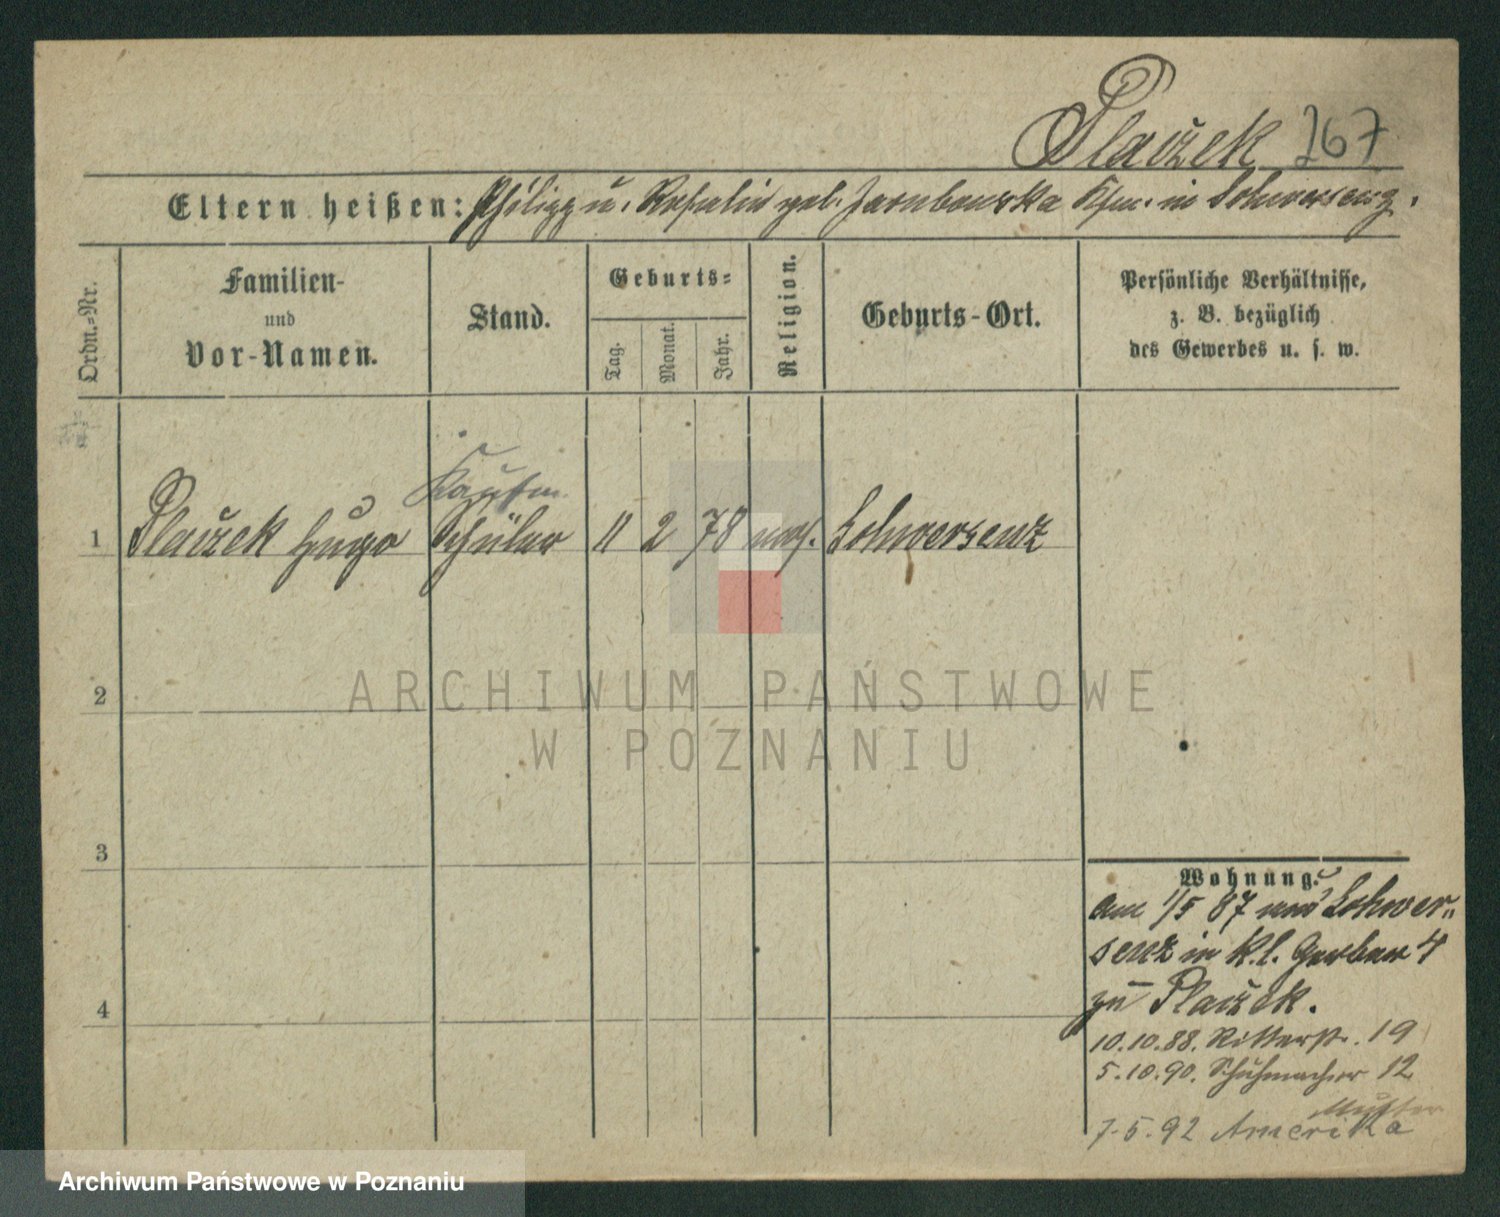 Placzek 267
Eltern heißen: Philipp u. Rosalie geb. Jarubowska Kfm. in Schwersenz.
Ordn.-Nr.
Familien-
und
Vor-Namen.
Stand.
Geburts-
Tag.
Monat.
Jahr.
Religion.
Geburts-Ort.
Persönliche Verhältnisse,
z. B. bezüglich
des Gewerbes u. s. w.
Kaufm.
1 Placzek Hugo Schüler 11 2 78 mos. Schwersenz
2
3
4
Wohnung.
am 1/5 87 von Schwer-
senz in Kl. Gerber 4
zu Placzek.
10.10.88. Ritterstr. 19
5.10.90. Schuhmacher 12
Mutter
7.5.92 Amerika
ARCHIWUM PAŃSTWOWE
W POZNANIU
Archiwum Państwowe w Poznaniu